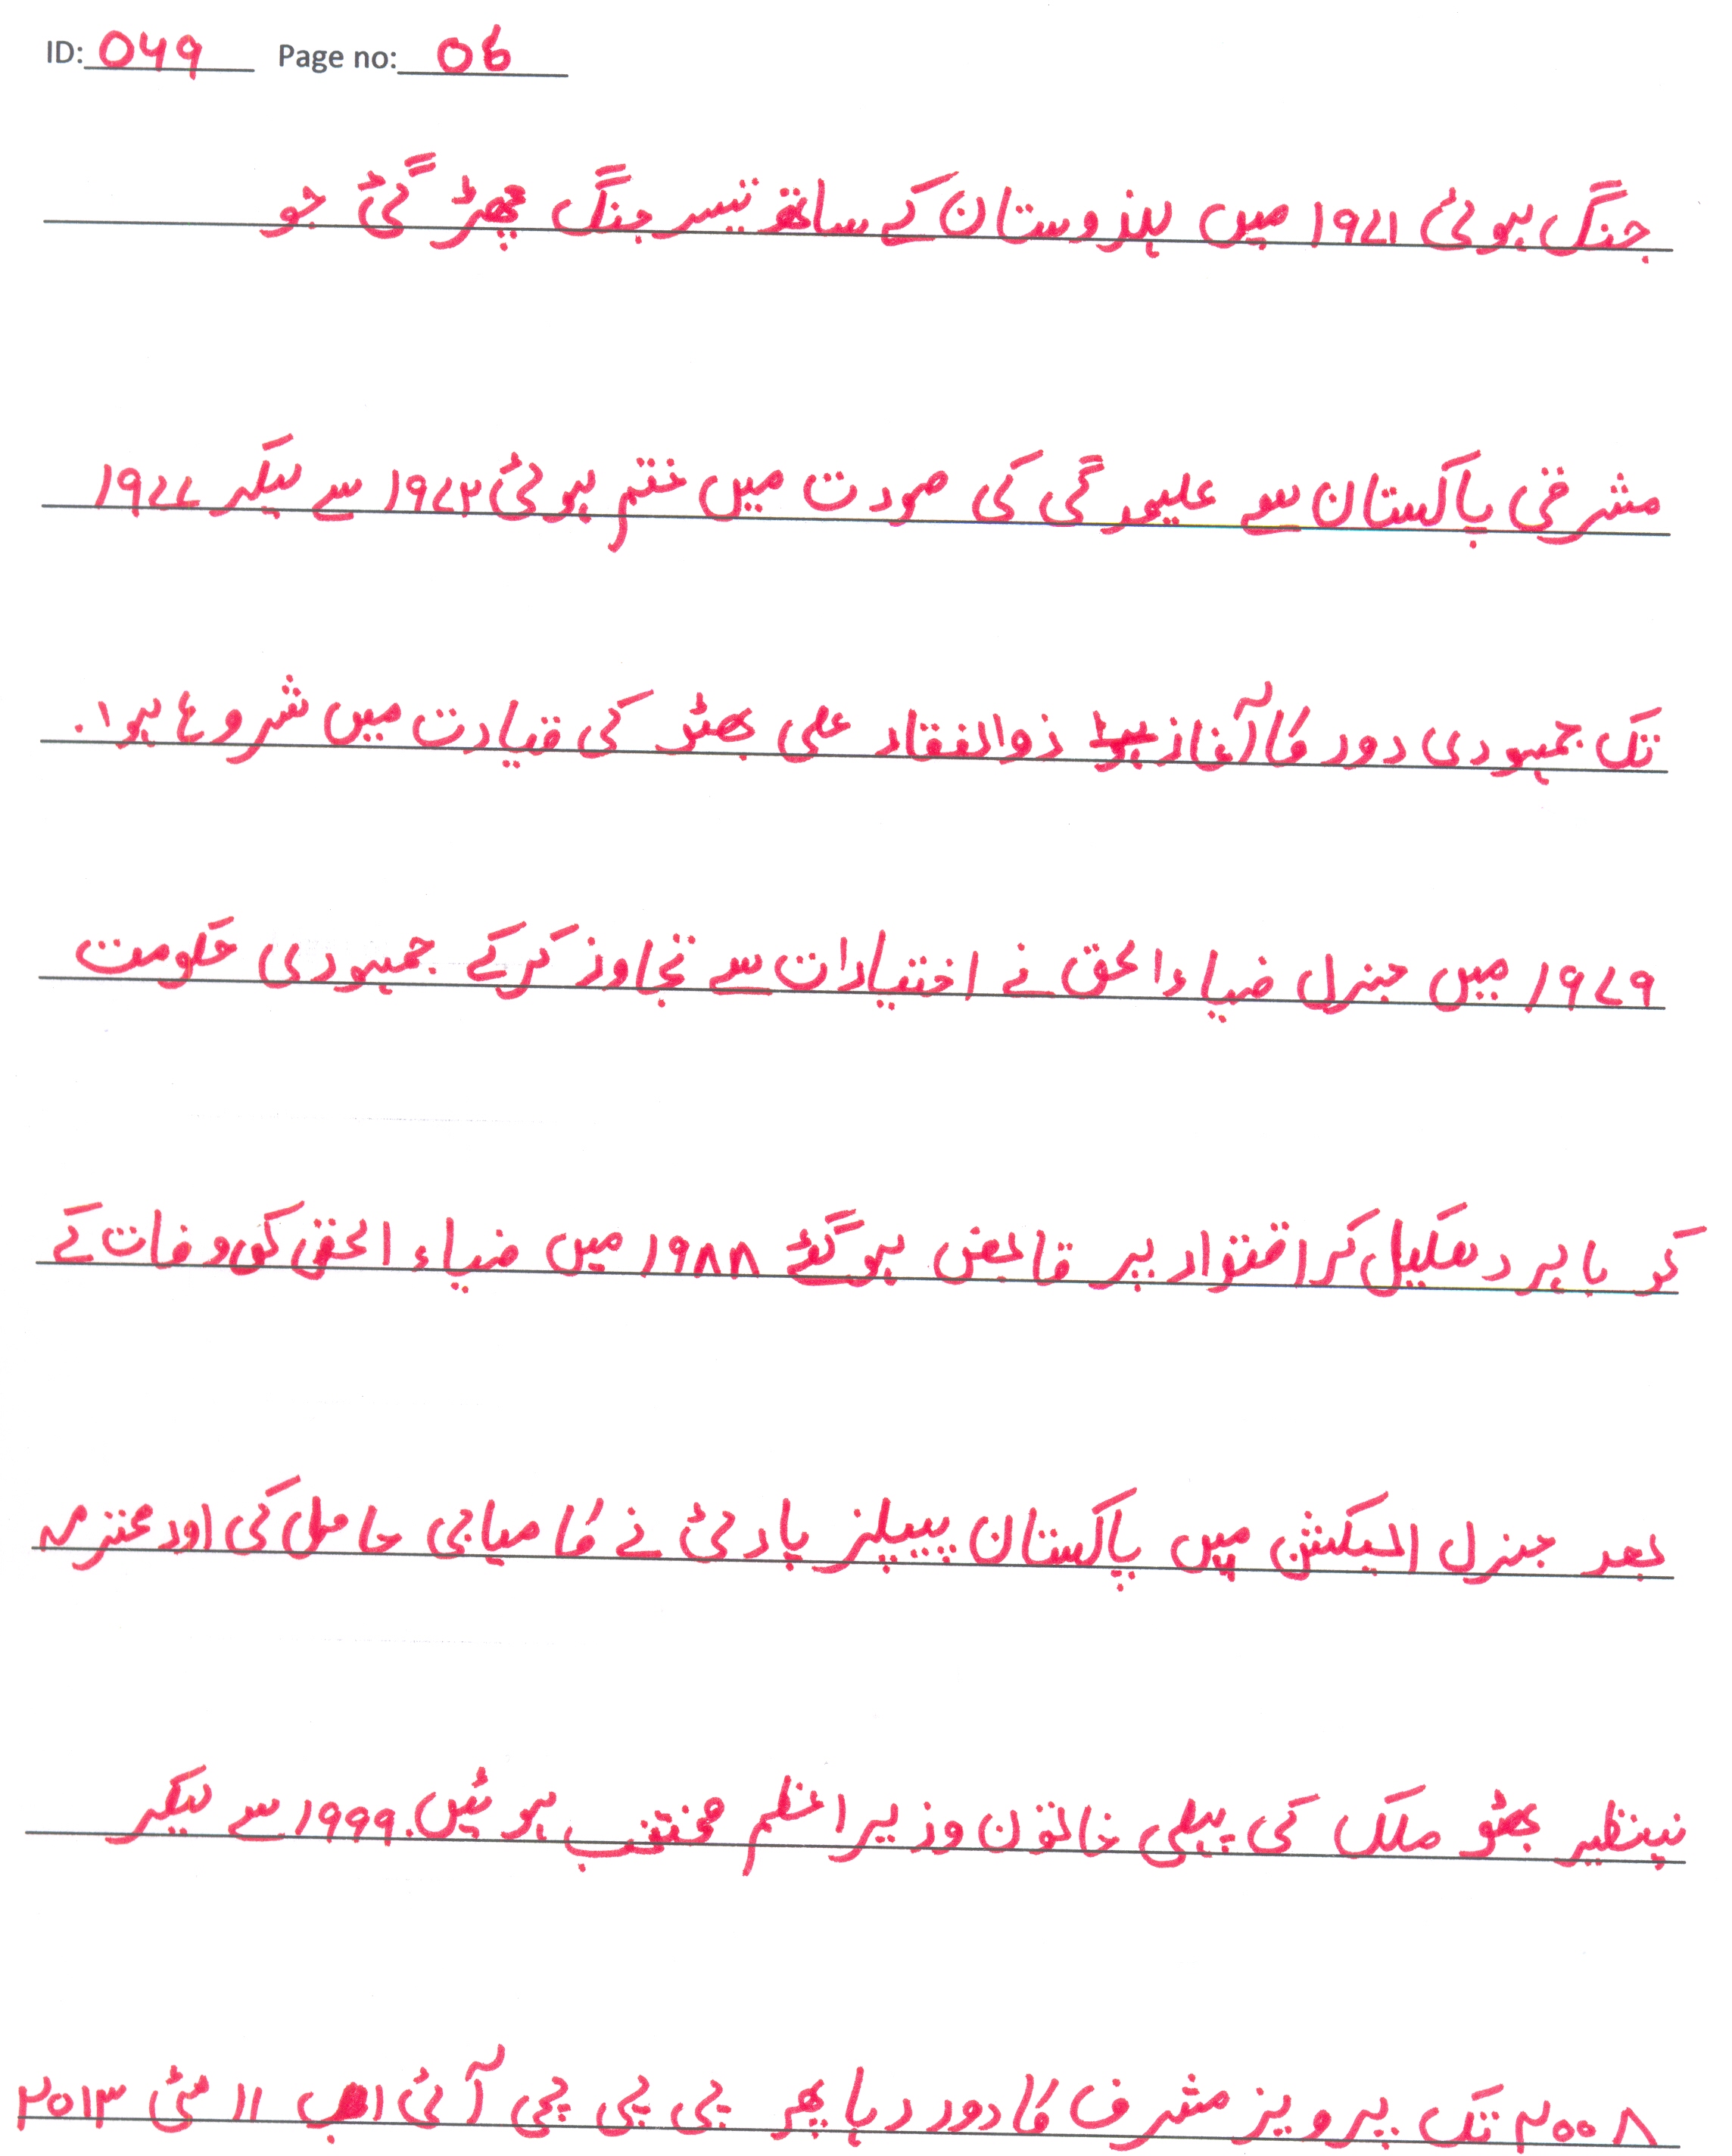 ID: 049 Page no: 06
جنگ ہوئی ۱۹۷۱ میں ہندوستان کے ساتھ تیسر جنگ چھڑ گئی جو
مشرقی پاکستان سے علیحدگی کی صورت میں ختم ہوئی ۱۹۷۲ سے لیکر ۱۹۷۷
تک جمہوری دور کا آغاز ہوا ذوالفقار علی بھٹو کی قیادت میں شروع ہوا.
۱۹۷۹ میں جنرل ضیاءالحق نے اختیارات سے تجاوز کر کے جمہوری حکومت
کو باہر دھکیل کر اقتدار پر قابض ہو گئے ۱۹۸۸ میں ضیاء الحق کی وفات کے
بعد جنرل الیکشن میں پاکستان پیپلز پارٹی نے کامیابی حاصل کی اور محترمہ
بینظیر بھٹو ملک کی پہلی خاتون وزیراعظم منتخب ہوئیں. ۱۹۹۹ سے لیکر
۲۰۰۸ تک پرویز مشرف کا دور رہا پھر پی پی پی آئی اب ۱۱ مئی ۲۰۱۳